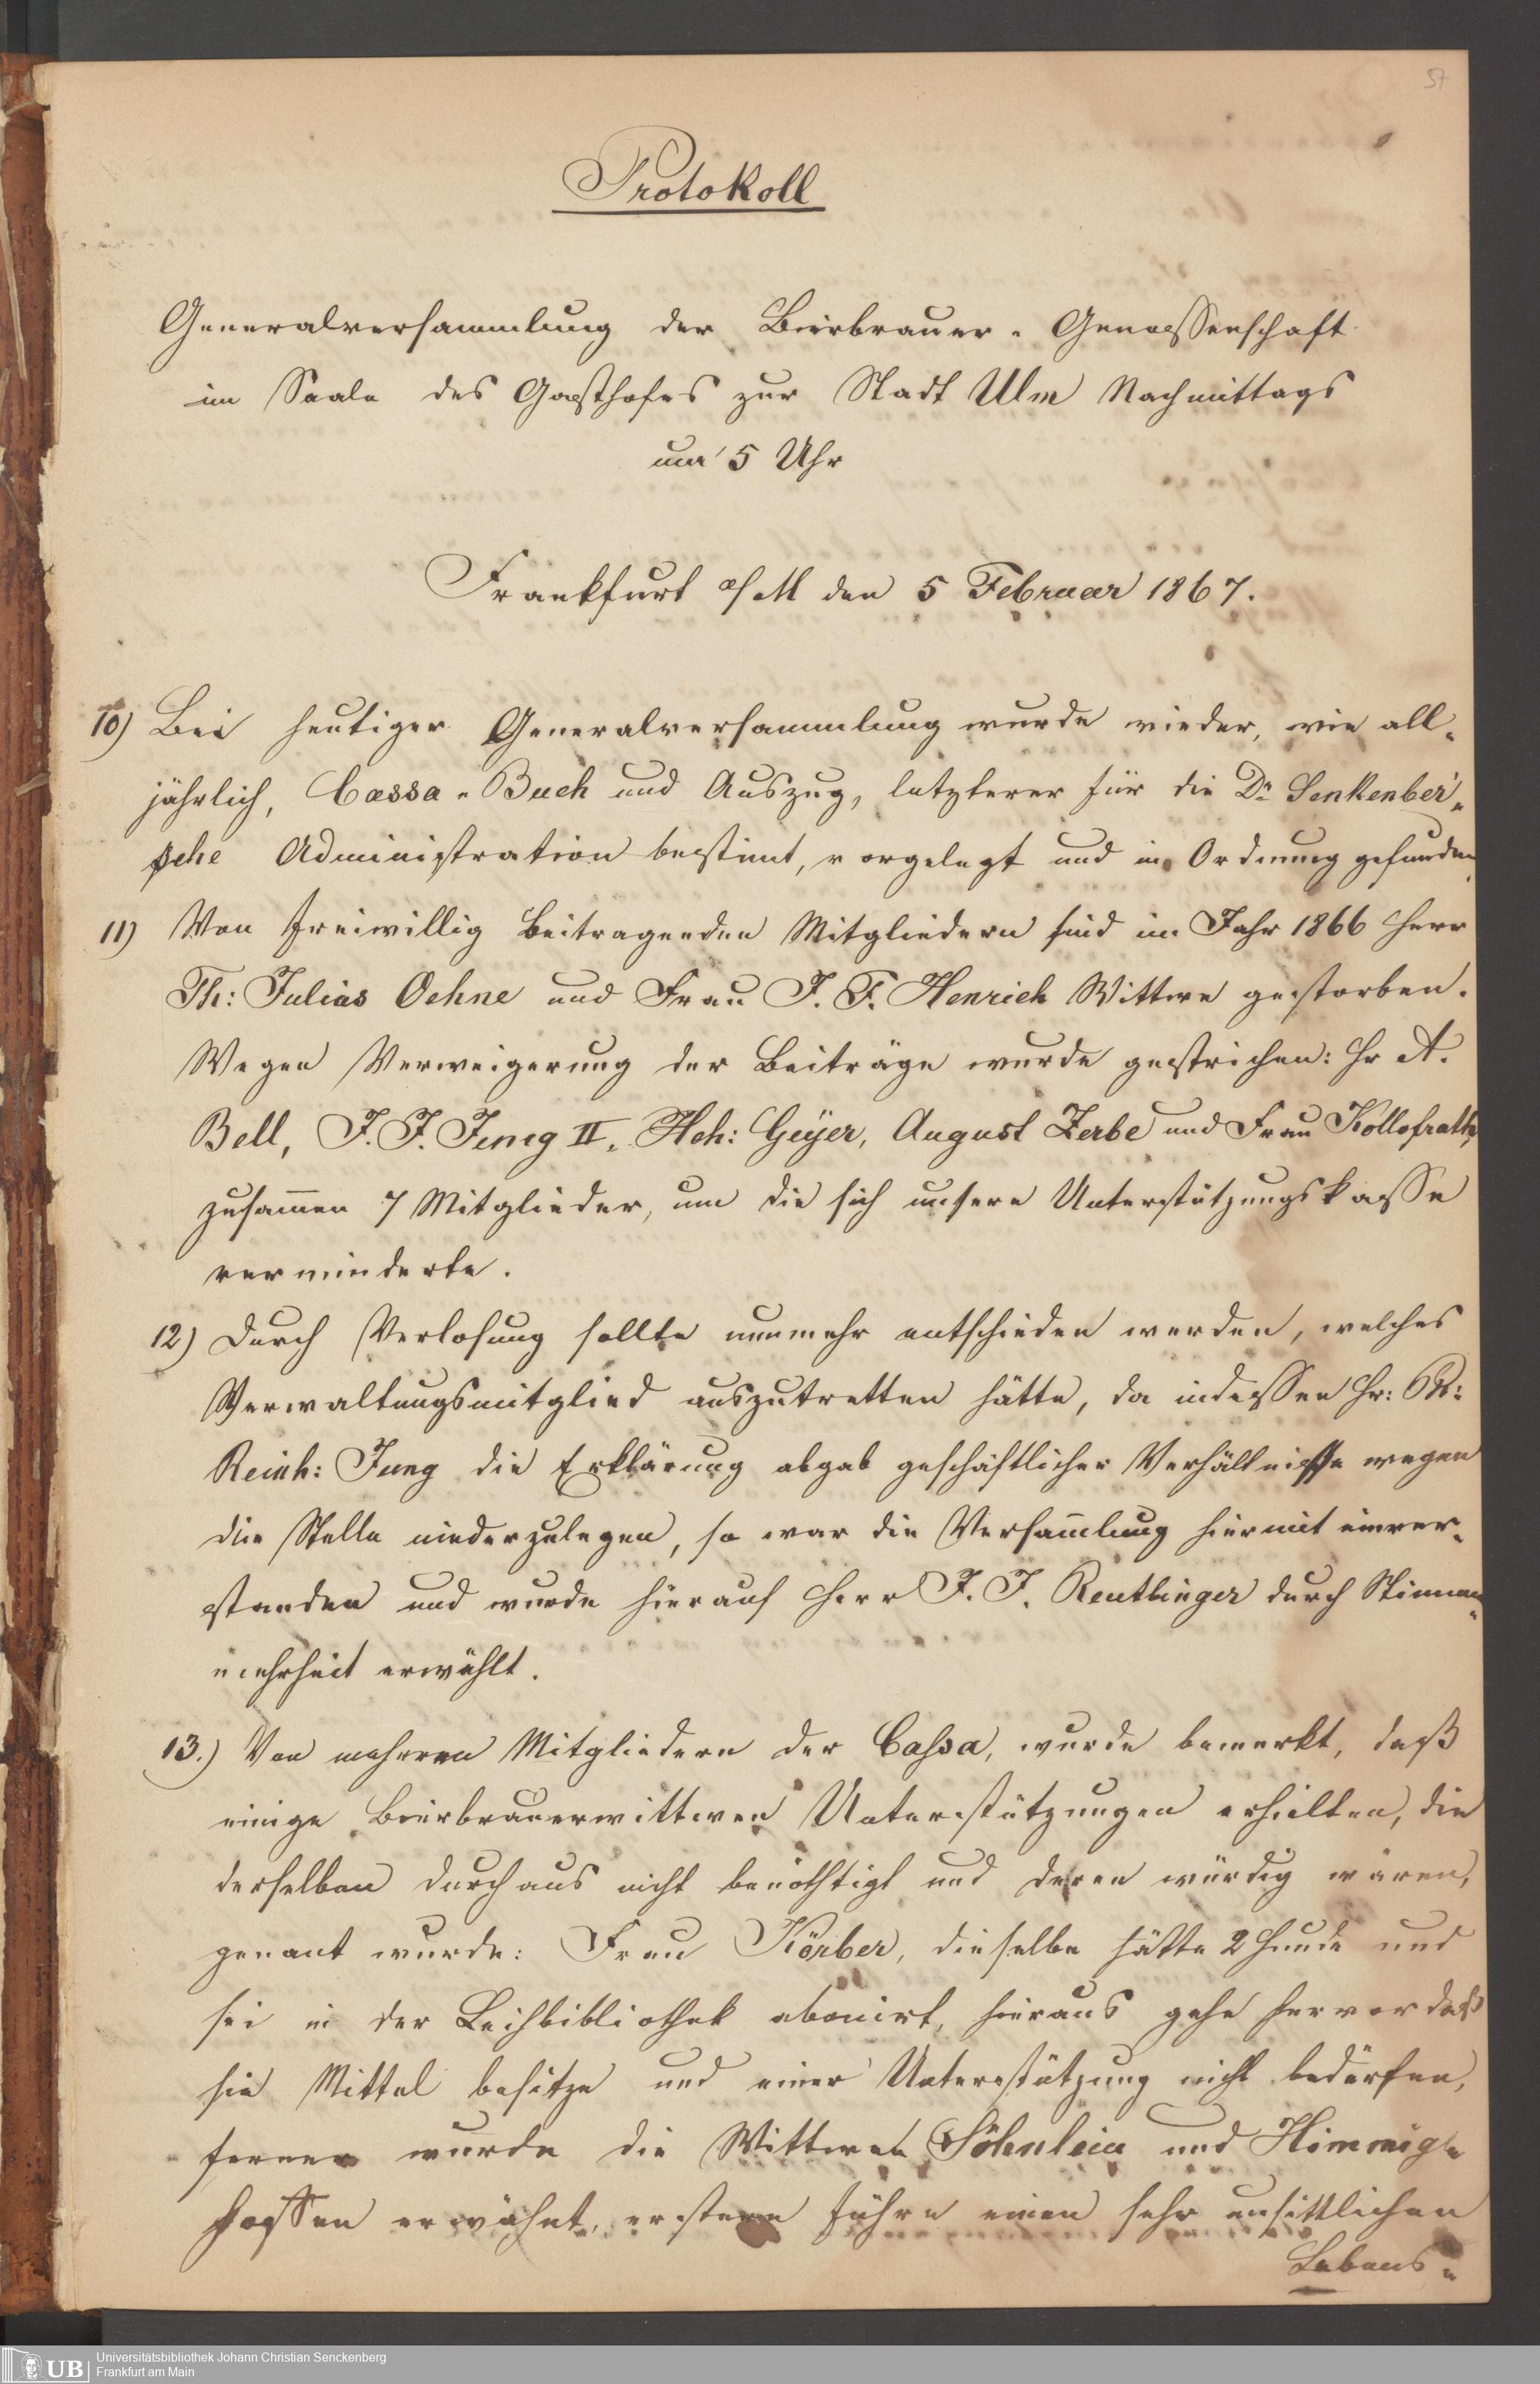 57
Protokoll
Generalversammlung der Bierbrauer-Genossenschaft
im Saale des Gasthofes zur Stadt Ulm Nachmittags
um 5 Uhr
Frankfurt a/M den 5 Februar 1867.
10) Bei heutiger Generalversammlung wurde wieder, wie all-
jährlich, Cassa-Buch und Auszug, letzterer für die Dr Senkenber-
sche Administration bestimt, vorgelegt und in Ordnung gefunden
11) Von freiwillig beitragenden Mitgliedern sind im Jahr 1866 Herr
Th: Julius Oehne und Frau J. F. Henrich Wittwe gestorben.
Wegen Verweigerung der Beiträge wurde gestrichen: Hr A.
Bell, J. J. Jung II, Hch: Geÿer, August Zerbe und Frau Kollofrath,
zusam̅en 7 Mitglieder, um die sich unsere Unterstützungskasse
verminderte.
12) Durch Verlosung sollte nunmehr entschieden werden, welches
Verwaltungsmitglied auszutretten hätte, da indessen Hr:
Reinh: Jung die Erklärung abgab geschäftlicher Verhältnisse wegen
die Stelle niederzulegen, so war die Versam̅lung hiermit einver-
standen und wurde hierauf Herr J. J. Reutlinger durch Stimmen-
mehrheit erwählt.
13.) Von mehreren Mitgliedern der Cassa, wurde bemerkt, daß
einige Bierbrauerwittwen Unterstützungen erhielten, die
derselben durchaus nicht benöthtigt und deren würdig wären,
genant wurde: Frau Körber, dieselbe hätte 2 Hunde und
sei in der Leihbibliothek abonirt, hieraus gehe hervor daß
sie Mittel besitze und einer Unterstützung nicht bedürfen,
ferner wurde die Wittwen Söhnlein und Himmig-
hossen erwähnt, erstere führe einen sehr unsittlichen
Lebens-
UB
Universitätsbibliothek Johann Christian Senckenberg
Frankfurt am Main